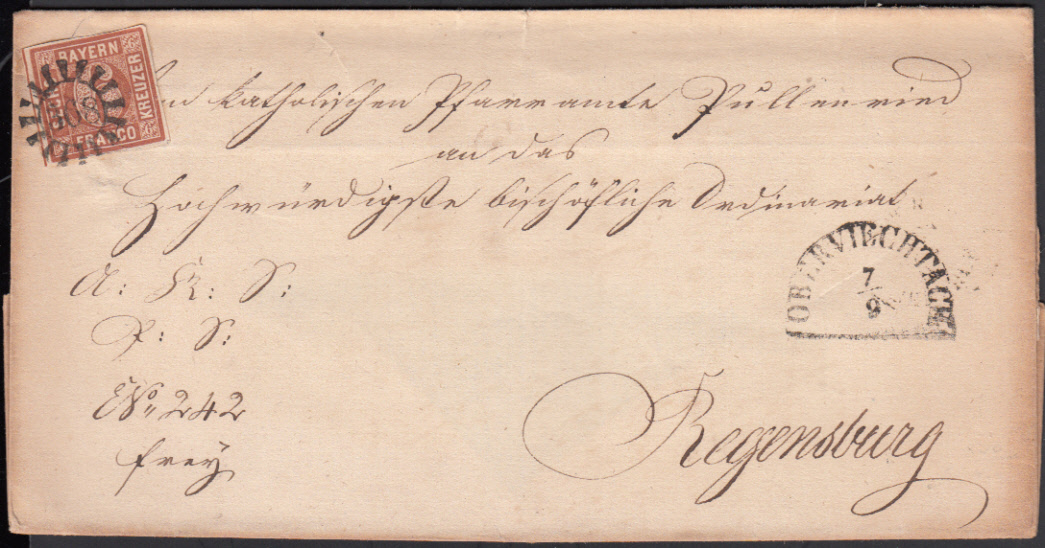 BAYERN
KREUZER
FRANCO
Vom Katholischen Pfarramte Pullenried
an das
Hochwürdigste bischöfliche Ordinariat
OBERVIECHTACH
7
9
A: K: S:
P: S:
No 242
frey
Regensburg